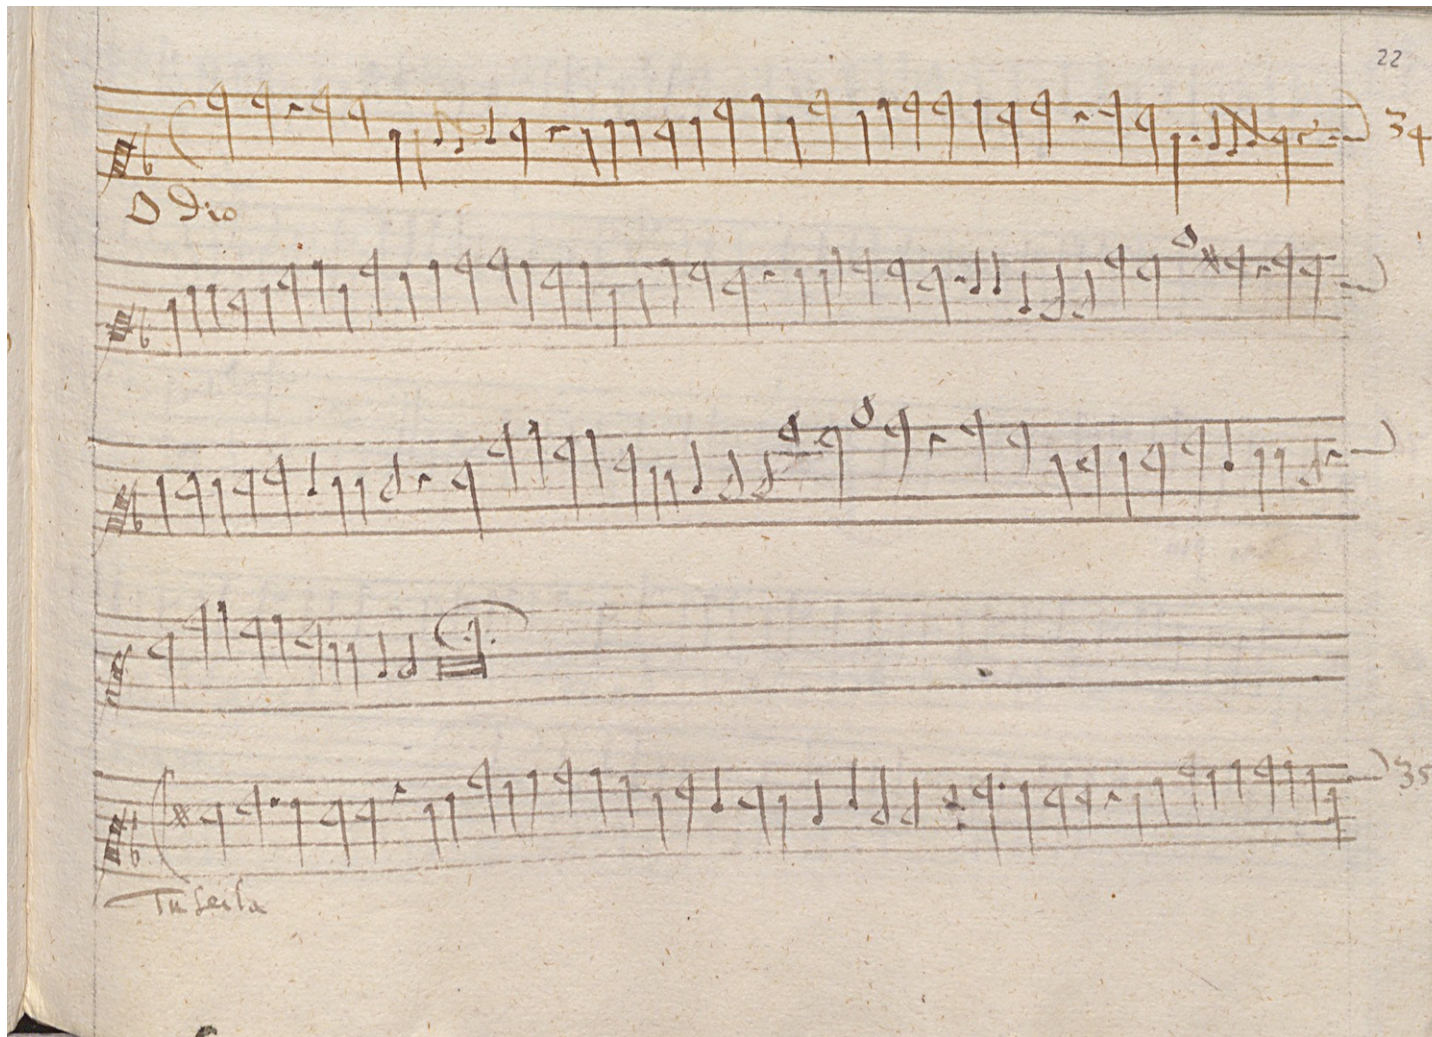 22
34
O Dio
35
Tu sei la